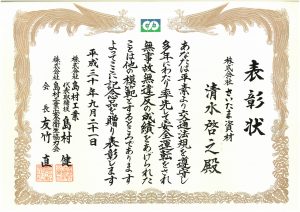 表彰状
株式会社さいたま資材
清水啓之殿
あなたは平素より交通法規を遵守し
多年にわたり率先して安全運転をされ
無事故無違反の成績をあげられた
ことは他の模範とするところであります
よってここに記念品を贈り表彰します
平成三十年九月二十一日
株式会社島村工業
代表取締役 島村健
株式会社島村工業
会長 友竹直